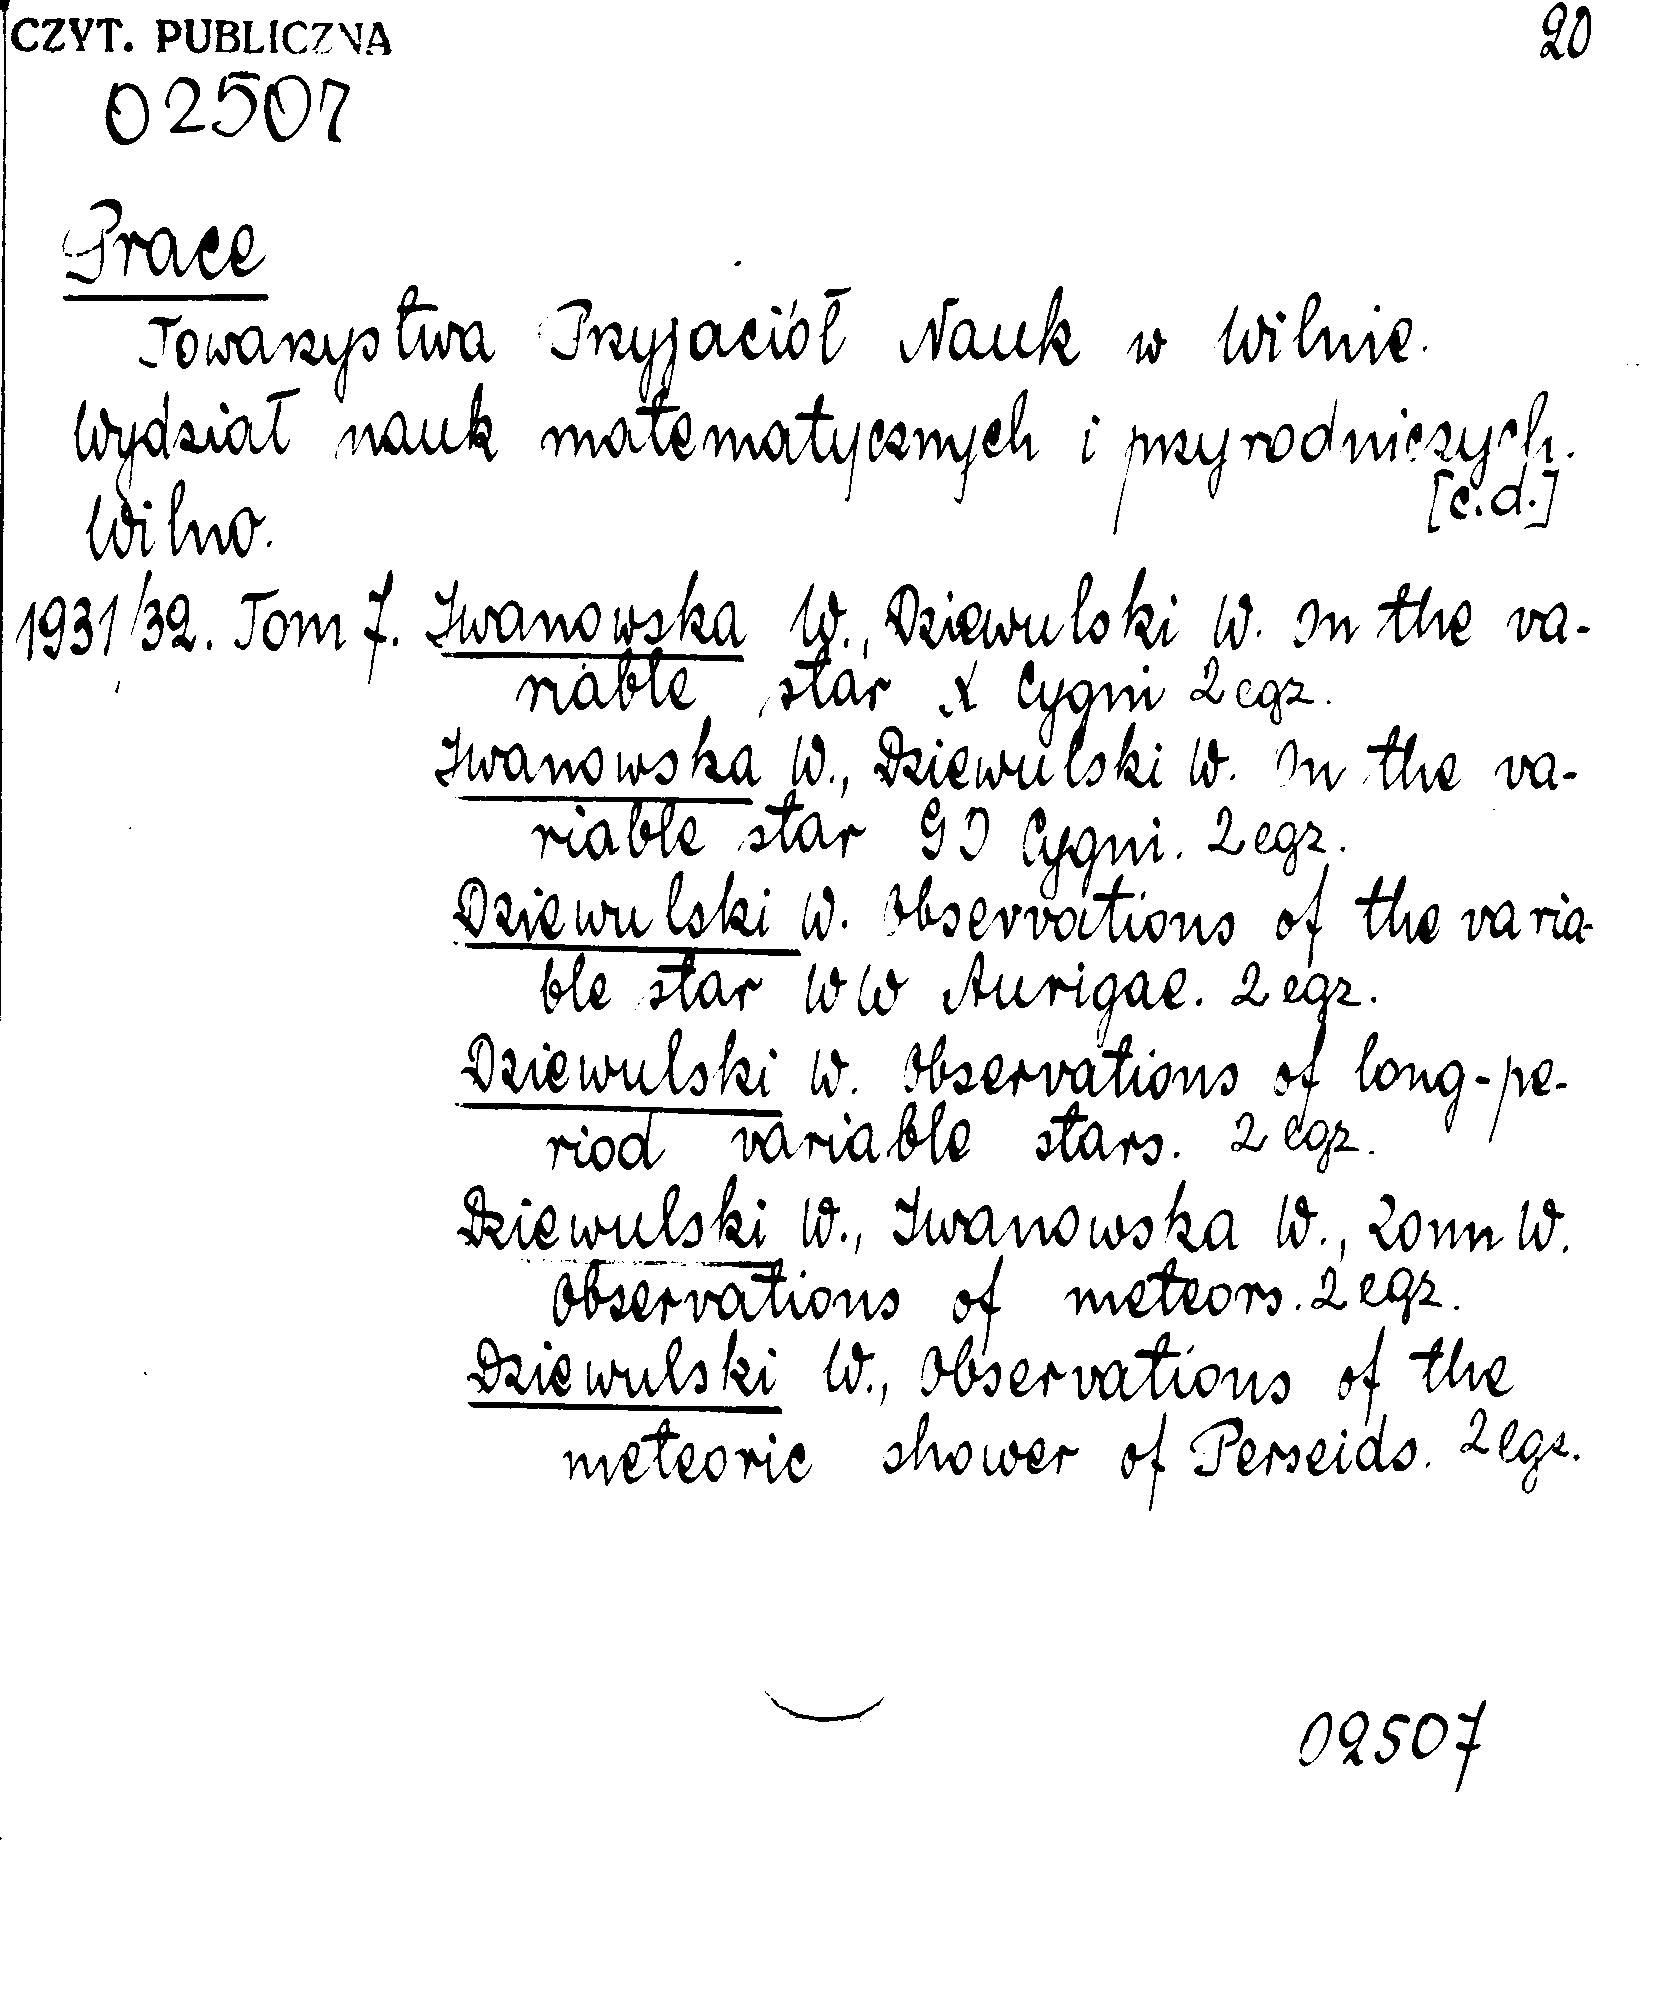 CZYT. PUBLICZNA
20
02507
Prace
Towarzystwa Przyjaciół Nauk w Wilnie.
Wydział nauk matematycznych i przyrodniczych.
[c.d.]
Wilno.
1931/32. Tom 7. Iwanowska W., Dziewulski W. On the va-
riable star X Cygni 2 egz.
Iwanowska W., Dziewulski W. On the va-
riable star GD Cygni. 2 egz.
Dziewulski W. Observations of the varia-
ble star WW Aurigae. 2 egz.
Dziewulski W. Observations of long-pe-
riod variable stars. 2 egz.
Dziewulski W., Iwanowska W., Zonn W.
Observations of meteors. 2 egz.
Dziewulski W., Observations of the
meteoric shower of Perseids. 2 egz.
02507